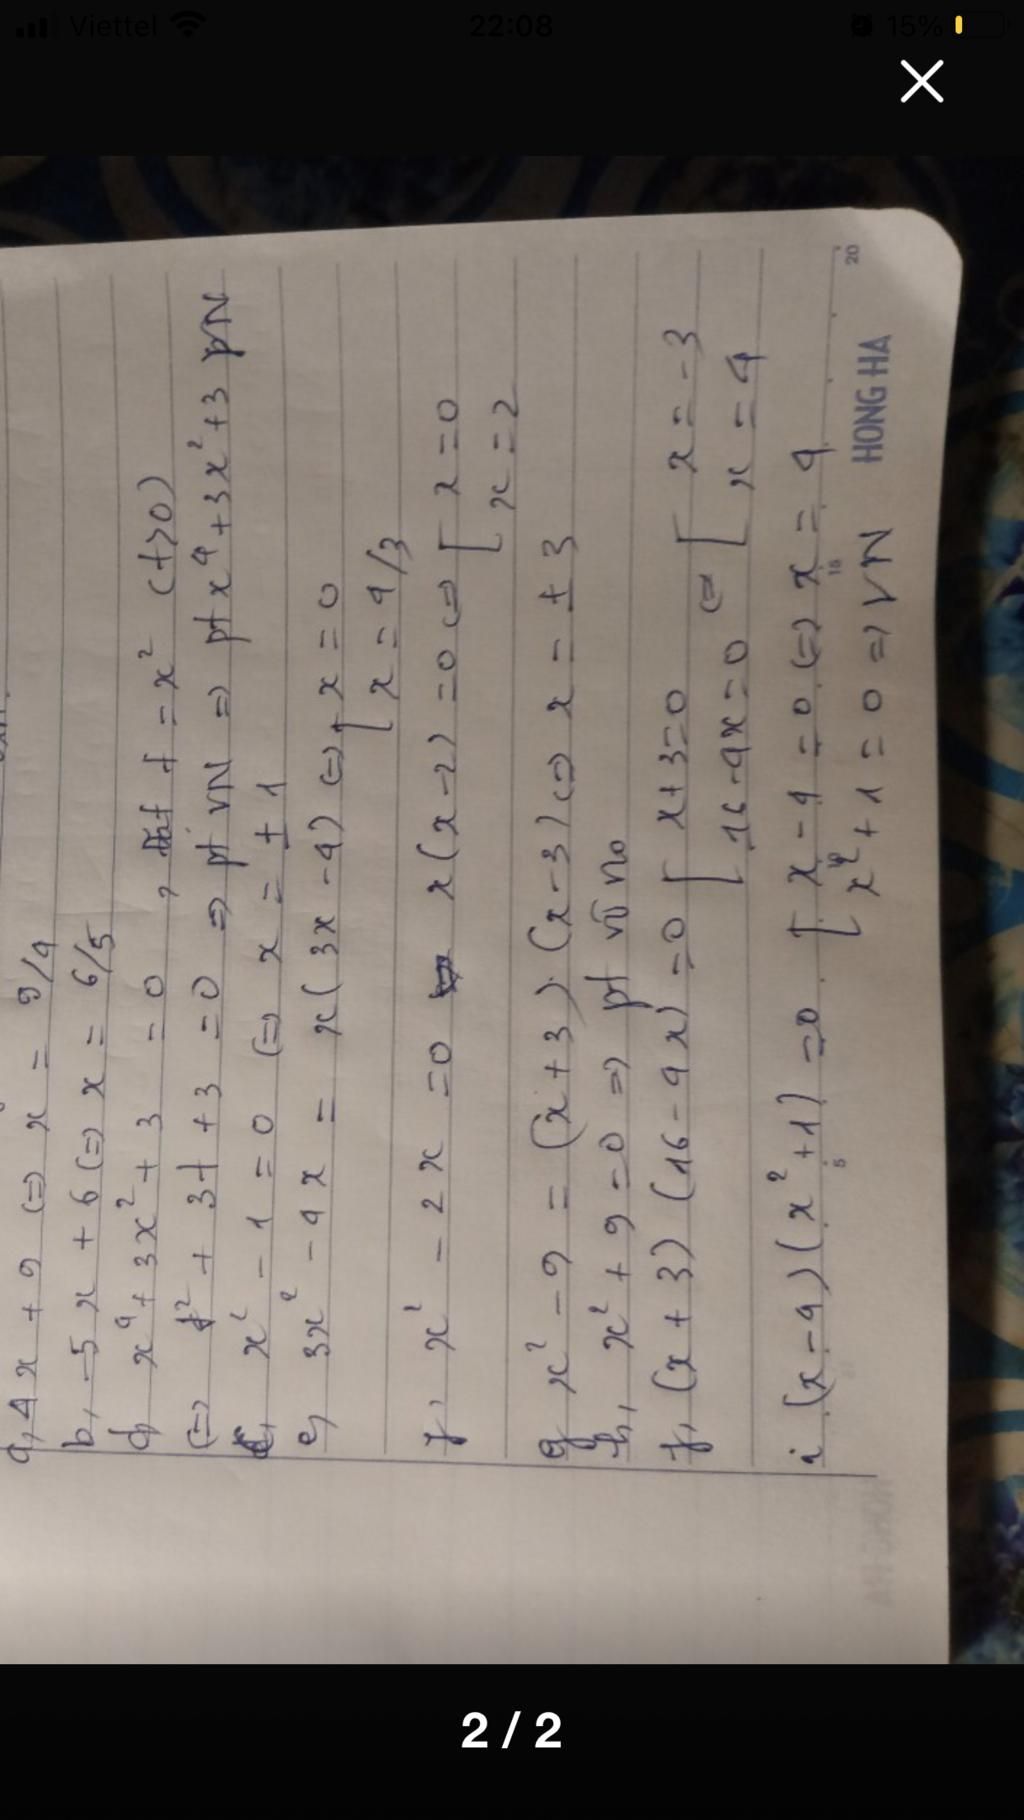 Viettel 22:08 15%
a, 4x + 9 (=) x = 9/4
b, -5x + 6 (=) x = 6/5
d, x⁴ + 3x² + 3 = 0 , đặt t = x² (t>0)
(=) t² + 3t + 3 = 0 => pt VN => pt x⁴ + 3x² + 3 VN
c, x² - 1 = 0 (=) x = ± 1
e, 3x² - 4x = x(3x - 4) (=) [ x = 0
x = 4/3
f, x² - 2x = 0 x(x - 2) = 0 (=) [ x = 0
x = 2
g x² - 9 = (x + 3).(x - 3) (=) x = ± 3
h, x² + 9 = 0 => pt vô no
f, (x + 3)(16 - 4x) = 0 [ x + 3 = 0 (=) [ x = -3
16 - 4x = 0 x = 4
i (x - 4)(x² + 1) = 0 [ x - 4 = 0 (=) x = 4
x² + 1 = 0 => VN
5 10 15 20
HONG HA
2 / 2